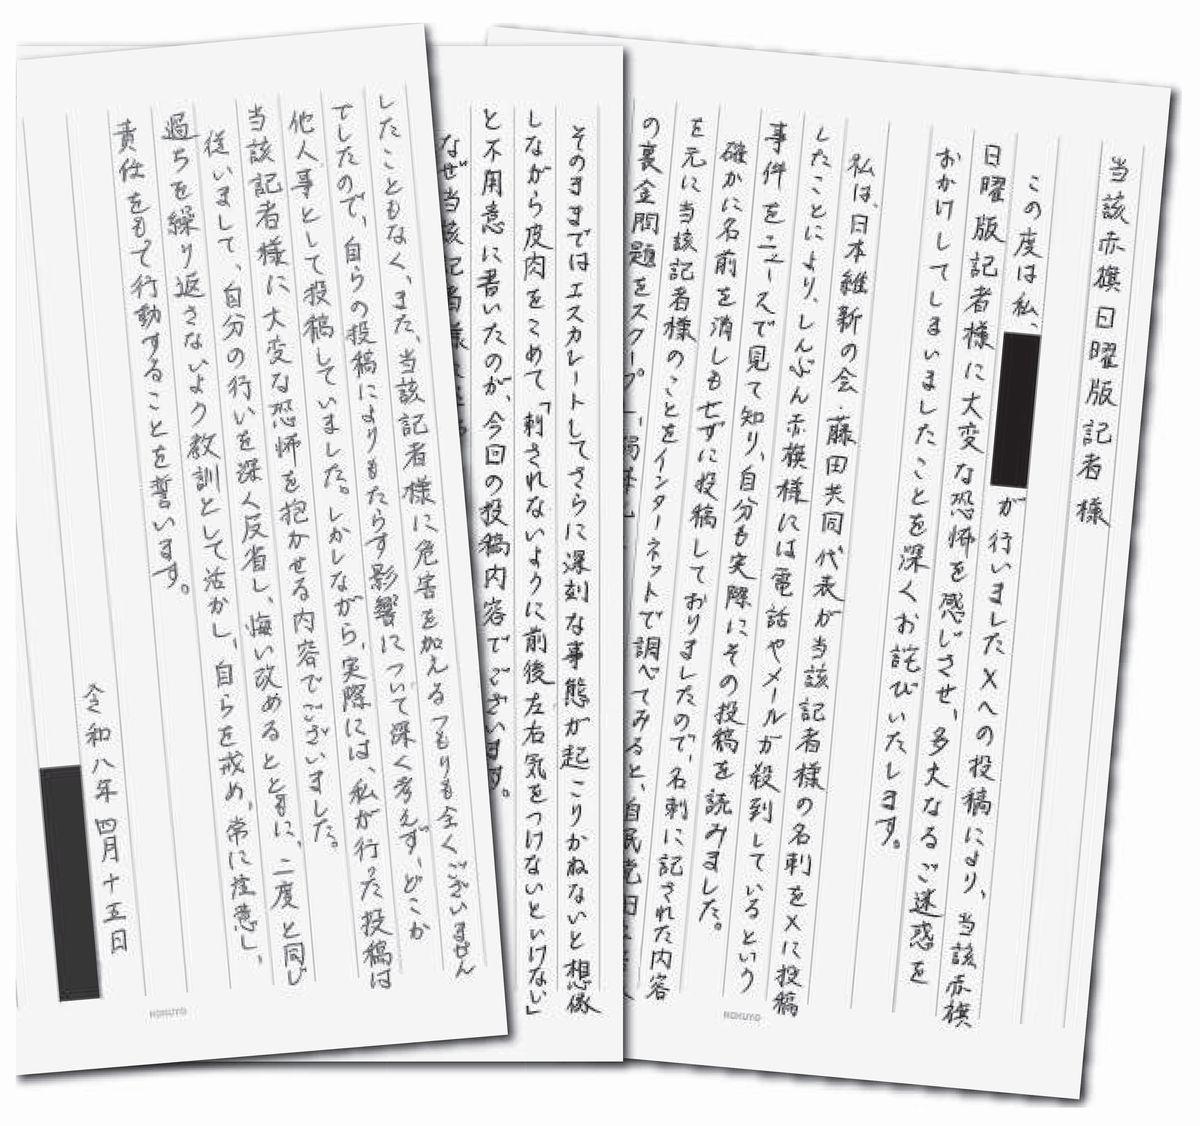 当該赤旗日曜版記者様
この度は私、
が行いましたXへの投稿により、当該赤旗
日曜版記者様に大変な恐怖を感じさせ、多大なるご迷惑を
おかけしてしまいましたことを深くお詫びいたします。
私は、日本維新の会・藤田共同代表が当該記者様の名刺をXに投稿
したことにより、しんぶん赤旗様には電話やメールが殺到しているという
事件をニュースで見て知り、自分も実際にその投稿を読みました。
確かに名前を消しもせずに投稿しておりましたので、名刺に記された内容
を元に当該記者様のことをインターネットで調べてみると、自民党
の裏金問題をスクープし、
そのままではエスカレートしてさらに深刻な事態が起こりかねないと想像
しながら皮肉をこめて「刺されないように前後左右気をつけないといけない」
と不用意に書いたのが、今回の投稿内容でございます。
なぜ当該記者様
したこともなく、また、当該記者様に危害を加えるつもりも全くございません
でしたので、自らの投稿によりもたらす影響について深く考えず、どこか
他人事として投稿していました。しかしながら、実際には、私が行った投稿は
当該記者様に大変な恐怖を抱かせる内容でございました。
従いまして、自分の行いを深く反省し、悔い改めるとともに、二度と同じ
過ちを繰り返さないよう教訓として活かし、自らを戒め、常に注意し、
責任をもって行動することを誓います。
令和八年四月十五日
KOKUYO
KOKUYO